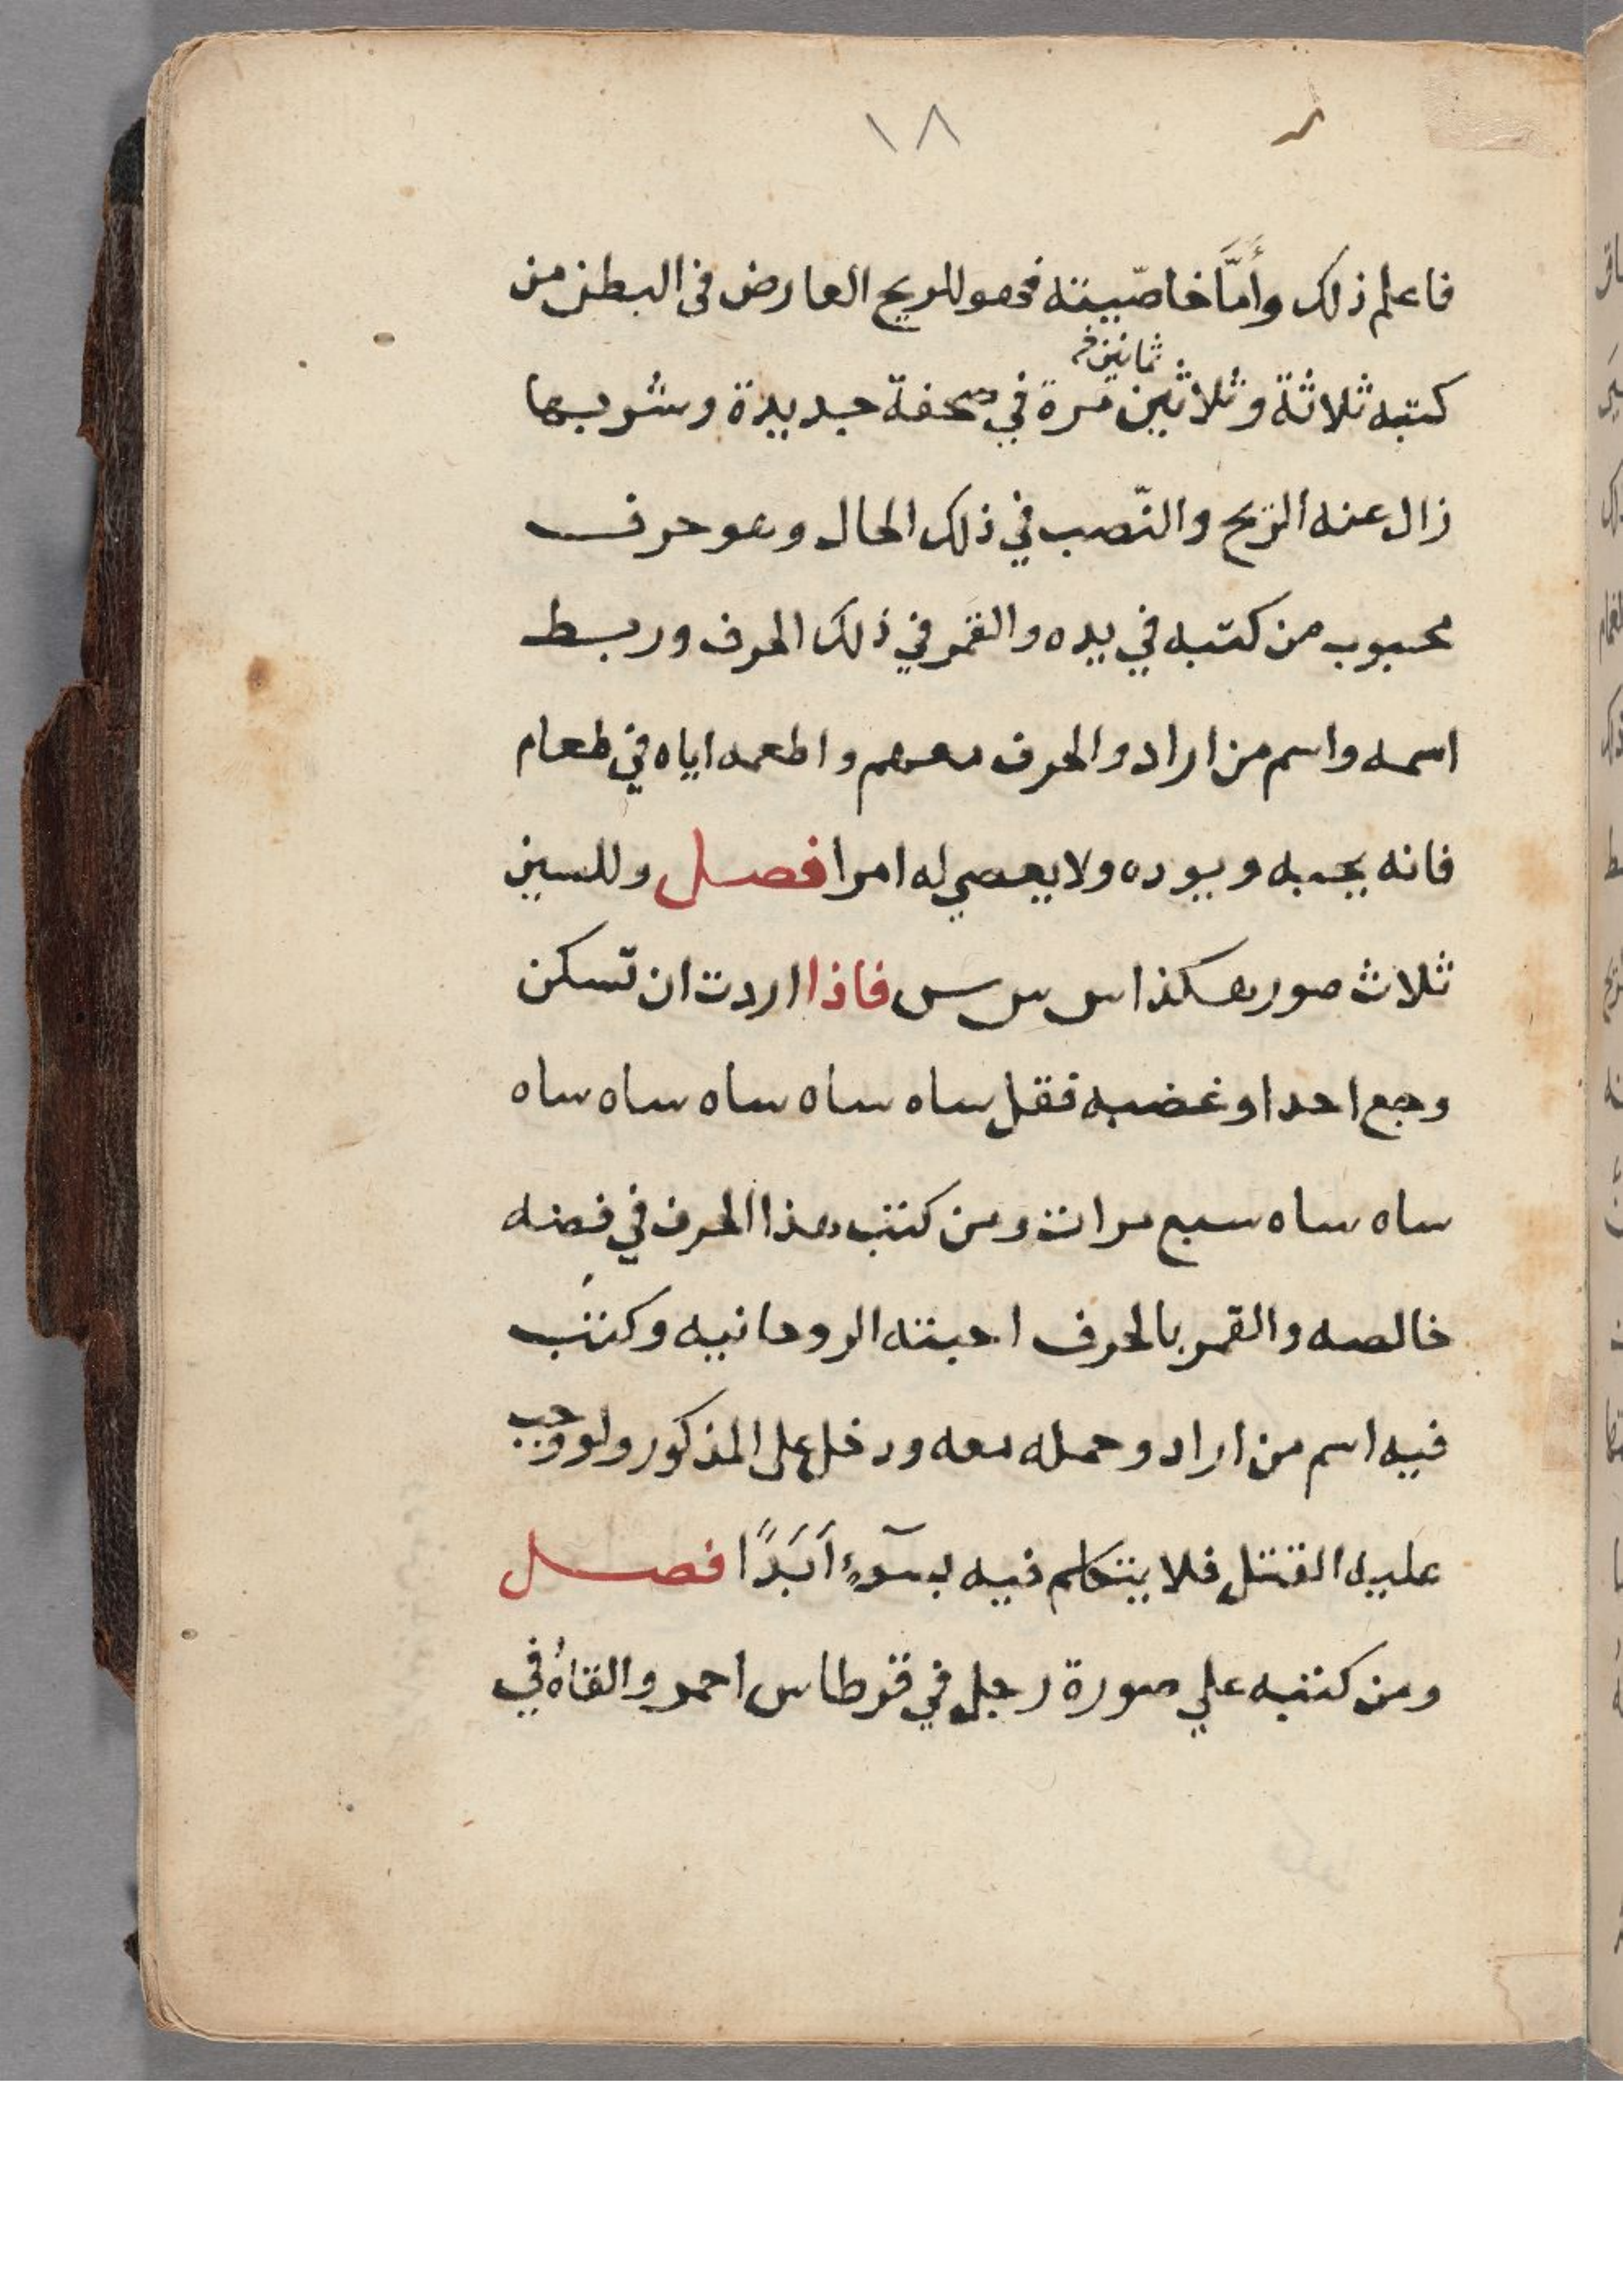 ١٨
فاعلم ذلك وأمَّا خاصّيته فهو للريح العارض فى البطن من
ثمانين خ
كتبه ثلاثة وثلاثين مرة في صحفة جديدة وشربها
زال عنه الريح والنّصب في ذلك الحال وهو حرف
محبوب من كتبه في يده والقمر في ذلك الحرف وربط
اسمه واسم من اراد والحرف معهم واطعمه اياه في طعام
فانه يحبه ويوده ولا يعصي له امرا فصل وللسين
ثلاث صور هكذا س س س فاذا اردت ان تسكن
وجع احد او غضبه فقل ساه ساه ساه ساه ساه
ساه ساه سبع مرات ومن كتب هذا الحرف في فضه
خالصه والقمر بالحرف احبته الروحانيه وكتب
فيه اسم من اراد وحمله معه ودخل على المذكور ولو وجب
عليه القتل فلا يتكلم فيه بسوٓءٍ أَبَدًا فصل
ومن كتبه علي صورة رجل في قرطاس احمر والقاه في